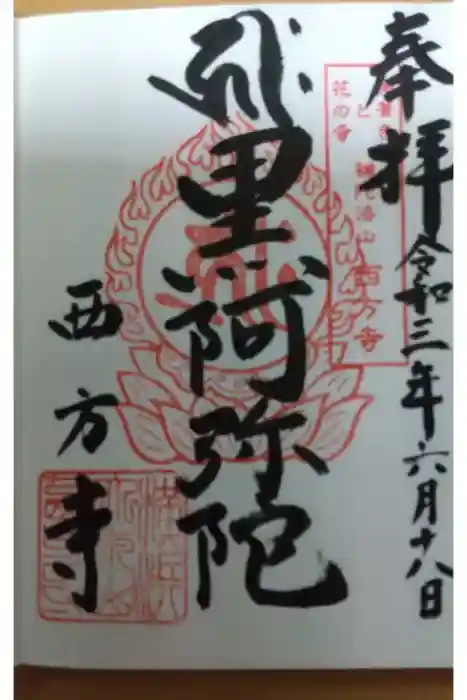 奉拝 令和三年六月十八日
花の寺
補陀洛山 西方寺
黒阿弥陀
西方寺